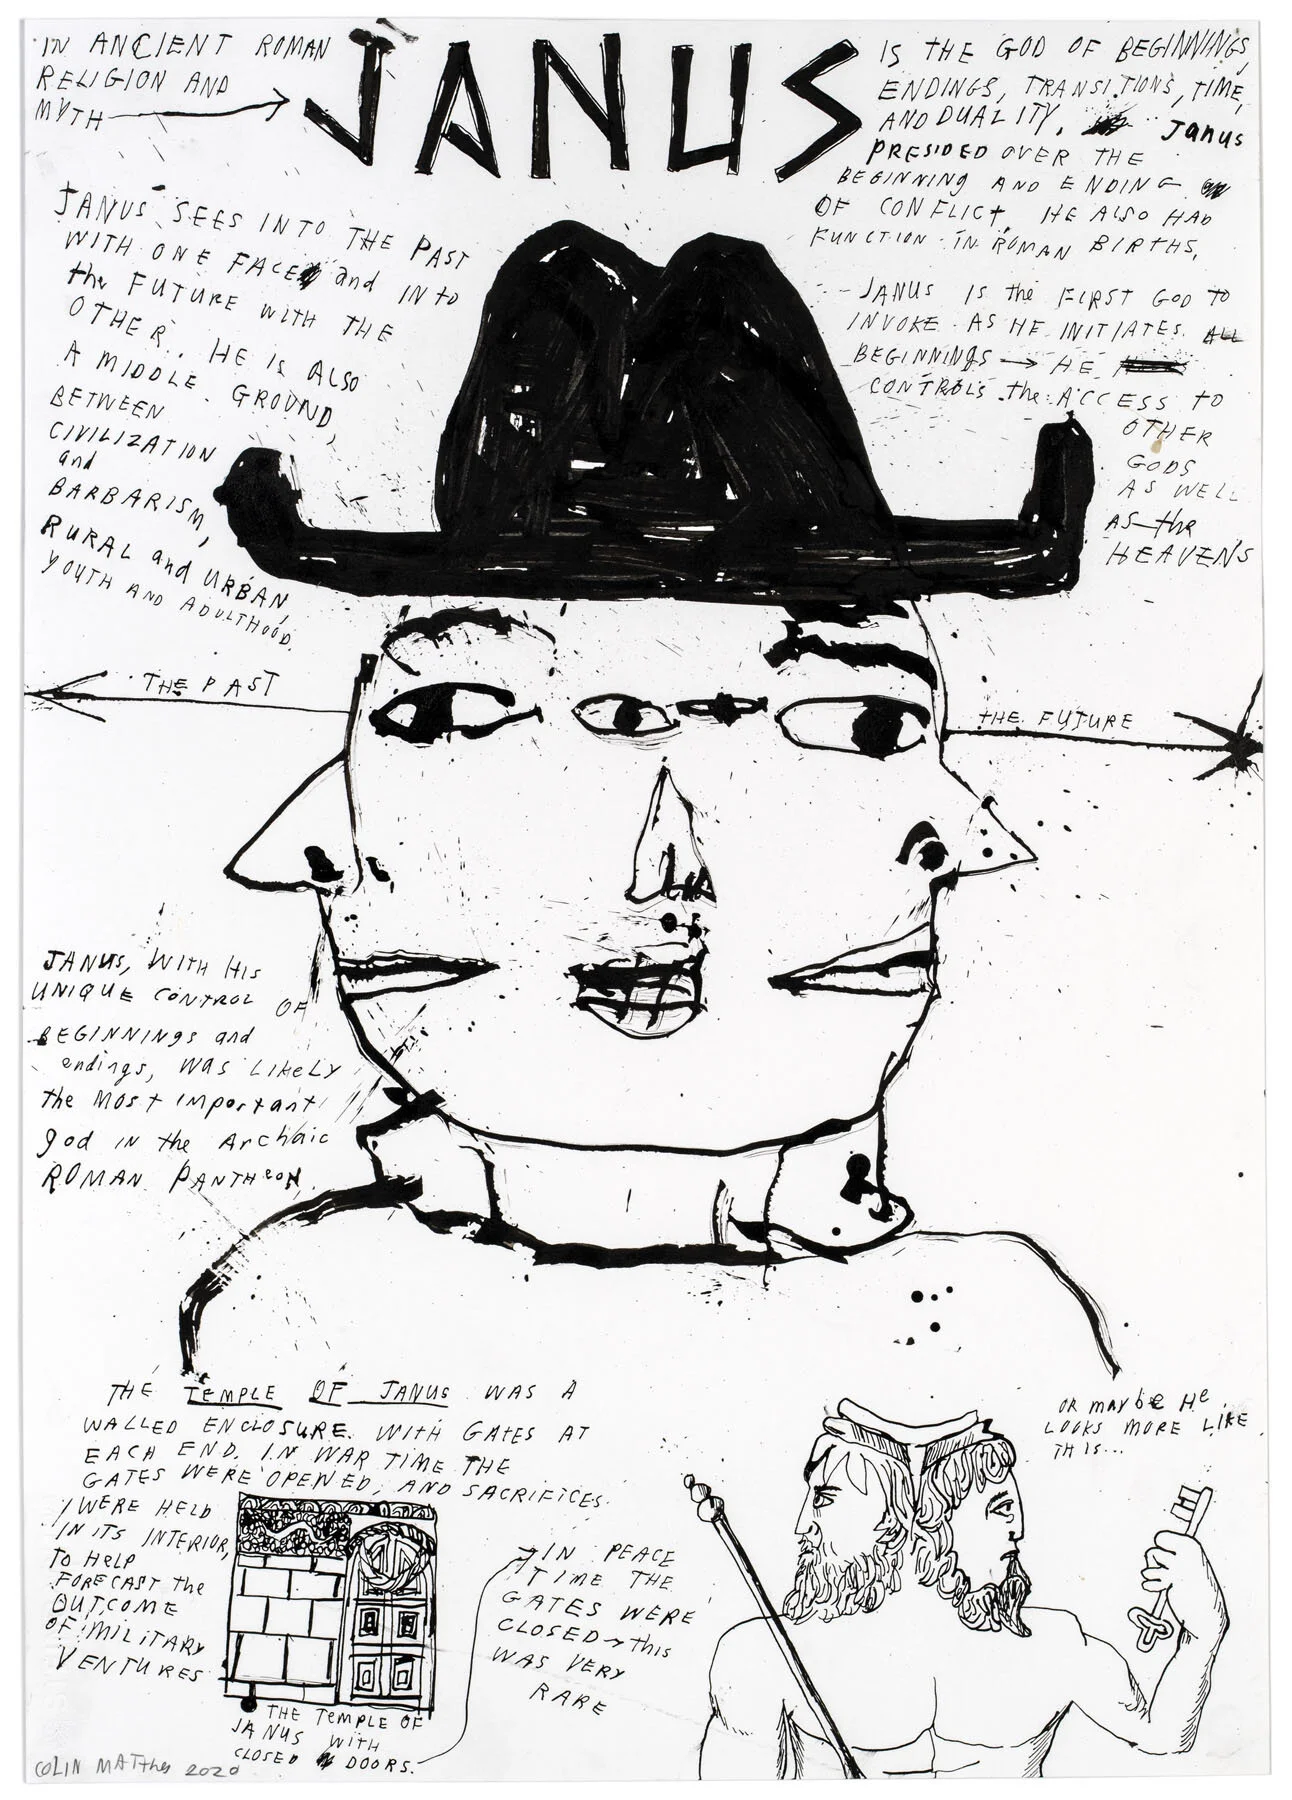 IN ANCIENT ROMAN
RELIGION AND
MYTH
JANUS
IS THE GOD OF BEGINNINGS,
ENDINGS, TRANSITIONS, TIME,
AND DUALITY. Janus
PRESIDED OVER THE
BEGINNING AND ENDING
OF CONFLICT, HE ALSO HAD
FUNCTION IN ROMAN BIRTHS,
JANUS SEES INTO THE PAST
WITH ONE FACE and INto
the FUTURE WITH THE
OTHER. HE is ALSO
A MIDDLE GROUND,
BETWEEN
CIVILIZATION
and
BARBARISM,
RURAL and URBAN,
YOUTH AND ADULTHOOD.
JANUS IS the FIRST GOD TO
INVOKE AS HE INITIATES ALL
BEGINNINGS → HE
CONTROLS the ACCESS TO
OTHER
GODS
AS WELL
AS the
HEAVENS
THE PAST
THE FUTURE
JANUS, WITH HIS
UNIQUE CONTROL OF
BEGINNINGS and
endings, WAS LIKELY
the MOST Important
god IN the Archaic
ROMAN PANTHEON.
THE TEMPLE OF JANUS WAS A
WALLED ENCLOSURE WITH GATES AT
EACH END. IN WAR TIME THE
GATES WERE OPENED, AND SACRIFICES
WERE HELD
IN ITS INTERIOR,
TO HELP
FORECAST the
OUTCOME
OF MILITARY
VENTURES
THE TEMPLE OF
JANUS WITH
CLOSED DOORS.
IN PEACE
TIME THE
GATES WERE
CLOSED → this
WAS VERY
RARE
OR maybe He
LOOKS MORE LIKE
THIS...
COLIN MATTHES 2020